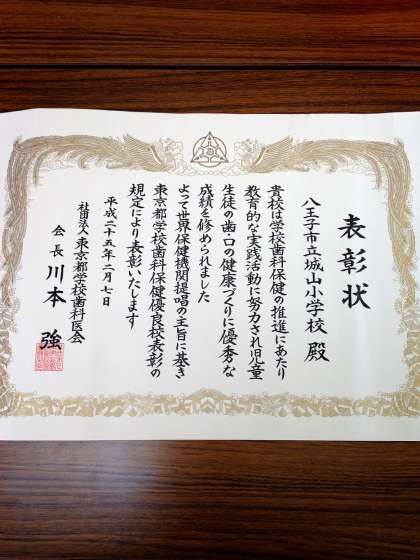 表彰状
八王子市立城山小学校 殿
貴校は学校歯科保健の推進にあたり
教育的な実践活動に努力され児童
生徒の歯・口の健康づくりに優秀な
成績を修められました
よって世界保健機関提唱の主旨に基き
東京都学校歯科保健優良校表彰の
規定により表彰いたします
平成二十五年二月七日
社団法人 東京都学校歯科医会
会長 川本 強